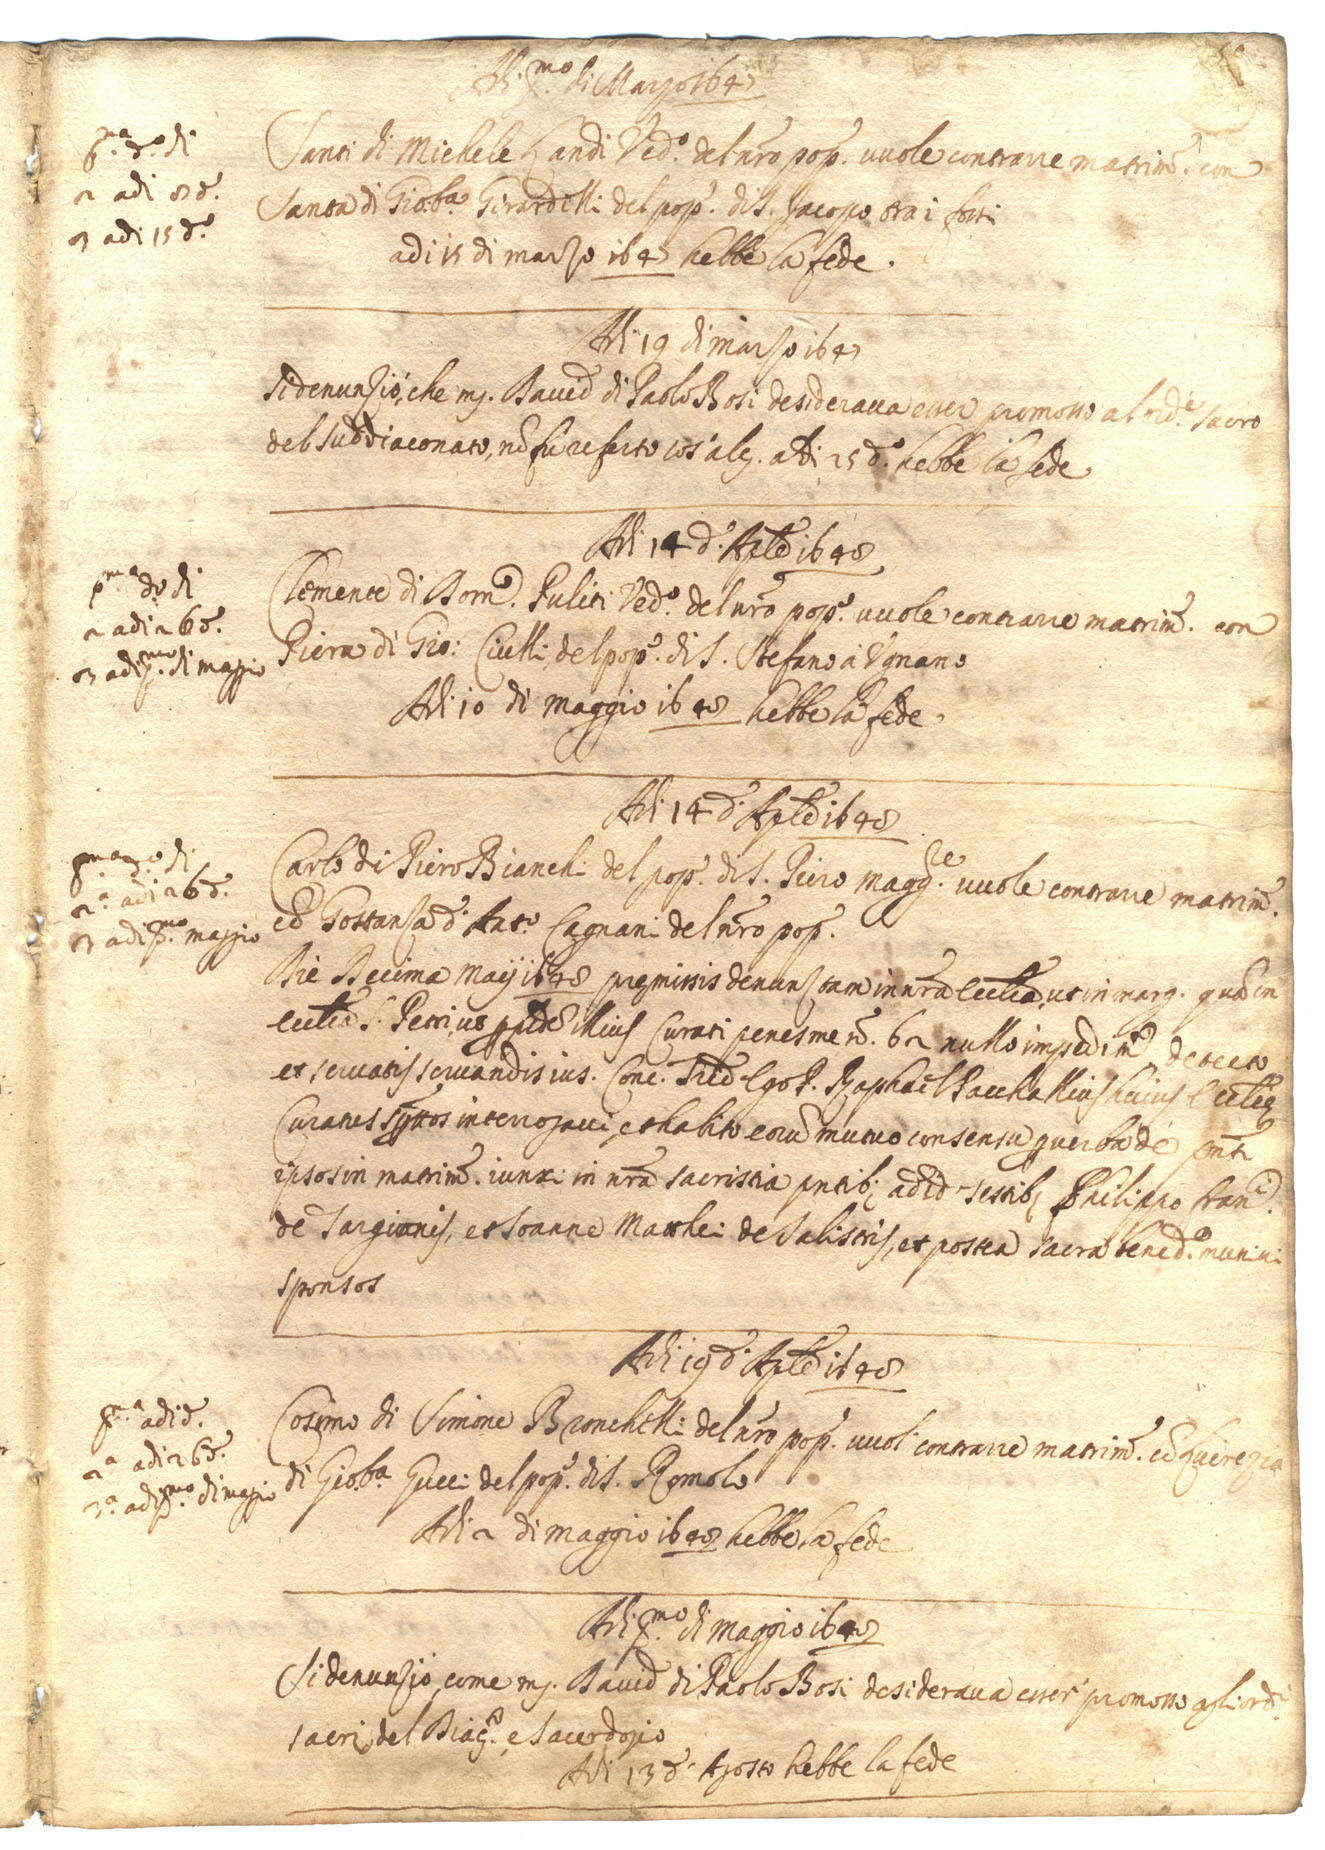 Adi p.mo di Marzo 1647
p.ma d.o di
2 adi 8 d.
3 adi 15 d.o
Santi di Michele Landi Ved.o del nro pop.o vuole contrarre matrim.o con
Santa di Gio:ba Girardelli del pop.o di S. Jacopo tra i fossi
adi 15 di marzo 1647 hebbe la fede.
Adi 19 di marzo 1647
Si denunziò, che mg. David di Paolo Bosi desiderava esser promosso al ord.e sacro
del suddiaconato, nō fu referto cos' alc. adi 25 d.o hebbe la fede
Adi 14 d' Aple 1648
p.ma d.o di
2 adi 26 d.
3 adi p.mo di maggio
Clemente di Dom.o Puliti Ved.o del nro pop.o vuole contrarre matrim.o con
Piera di Gio: Ciulli del pop.o di S. Stefano a Ugnano
Adi 10 di maggio 1648 hebbe la fede.
Adi 14 d' Aple 1648
p.ma d.o di
2.a adi 26 d.
3 adi p.mo maggio
Carlo di Piero Bianchi del pop.o di S. Piero Magg.re vuole contrarre matrim.o
cō Gostanza d' Ant.o Cagnani del nro pop.o
Die Decima Maij 1648 premissis denunz tam in nrā Ecclīa, ut in marg. quā in
Ecclīa S. Petri, ut p fidē illius Curati penes me n.o 62 nullo impedim.o detecto
et servatis servandis ius. Conc. Trid. Ego P. Raphael Pacchi illius huius Ecclīę
Curatus supttos interrogavi, et habito eorū mutuo consensu p verba de pnti
ipsos in matrim. iunxi in nrā sacristia pntib; ad id testib; Philippo Franc.i
de Targionis, et Joanne Matthei de Salistris, et postea sacra bened.e munivi
sponsos
Adi 19 d' Aple 1648
p.ma adi d.
2.a adi 26 d.
3.a adi p.mo di maggio
Cosimo di Simone Bronchelli del nro pop.o vuol contrarre matrim.o cō Lucrezia
di Gio:ba Gucci del pop.o di S. Romolo
Adi 2 di maggio 1648 hebbe la fede
Adi p.mo di maggio 1648
Si denunziò, come mg. David di Paolo Bosi desiderava esser promosso agli ord.i
sacri, del Diac.o, e Sacerdozio
Adi 13 d' Agosto hebbe la fede